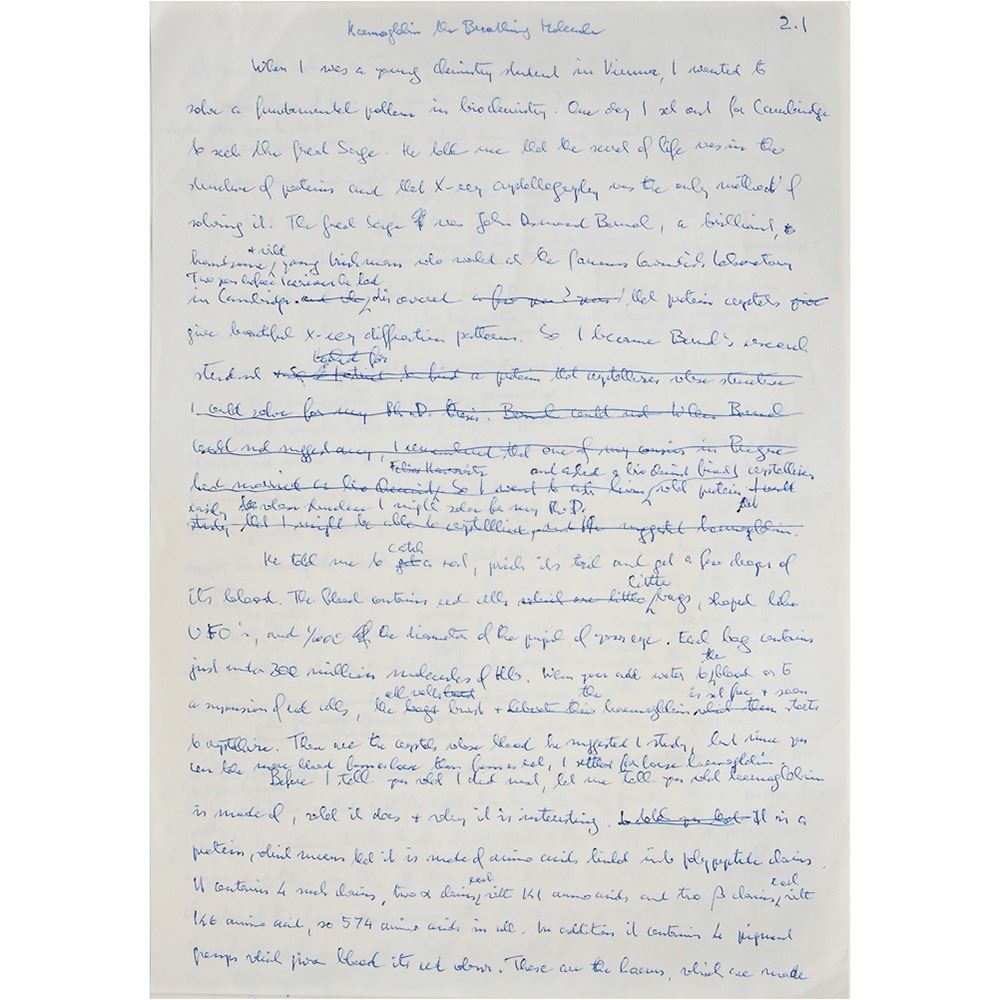 Haemoglobin the Breathing Molecule
2.1
When I was a young chemistry student in Vienna, I wanted to
solve a fundamental problem in biochemistry. One day I set out for Cambridge
to seek the great Sage. He told me that the secret of life was in the
structure of proteins and that X-ray crystallography was the only method of
solving it. The great Sage was John Desmond Bernal, a brilliant,
+ wild
handsome, young Irishman who worked at the famous Cavendish Laboratory
Two years before I arrived he had
in Cambridge and he discovered a few years that protein crystals give
give beautiful X-ray diffraction patterns. So I became Bernal's research
looked for
student to find a protein that crystallises whose structure
I could solve for my Ph.D. thesis. Bernal could not When Bernal
could not suggest any, I remembered that one of my cousins in Prague
Felix Haurowitz and asked a biochemist friend crystallises
had married a biochemist, So I went to ask him, what protein I could
easily whose structure I might solve for my Ph.D.
study, that I might be able to crystallise, and he suggested haemoglobin.
catch
He told me to get a rat, prick its tail and get a few drops of
little
its blood. The blood contains red cells which are little bags, shaped like
UFO's, and 1/1000 of the diameter of the pupil of your eye. Each bag contains
the
just under 300 million molecules of Hb. When you add water to blood or to
all cells the is set free + soon
a suspension of red cells, the bags burst + liberate their haemoglobin which then starts
to crystallise. These are the crystals whose blood he suggested I study, but since you
can take more blood from a horse than from a rat, I settled for horse haemoglobin.
Before I tell you what I did next, let me tell you what haemoglobin
is made of, what it does + why it is interesting. I told you that It is a
protein, which means that it is made of amino acids linked into polypeptide chains.
each each
It contains 4 such chains, two α chains, with 141 amino acids and two β chains, with
146 amino acid, so 574 amino acids in all. In addition it contains 4 pigment
groups which give blood its red colour. These are the haems, which are made